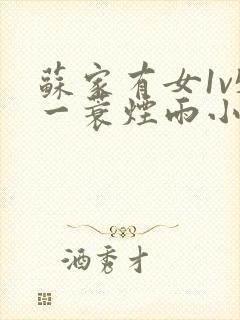 蘇家有女1v
一蓑煙雨小
酒秀才